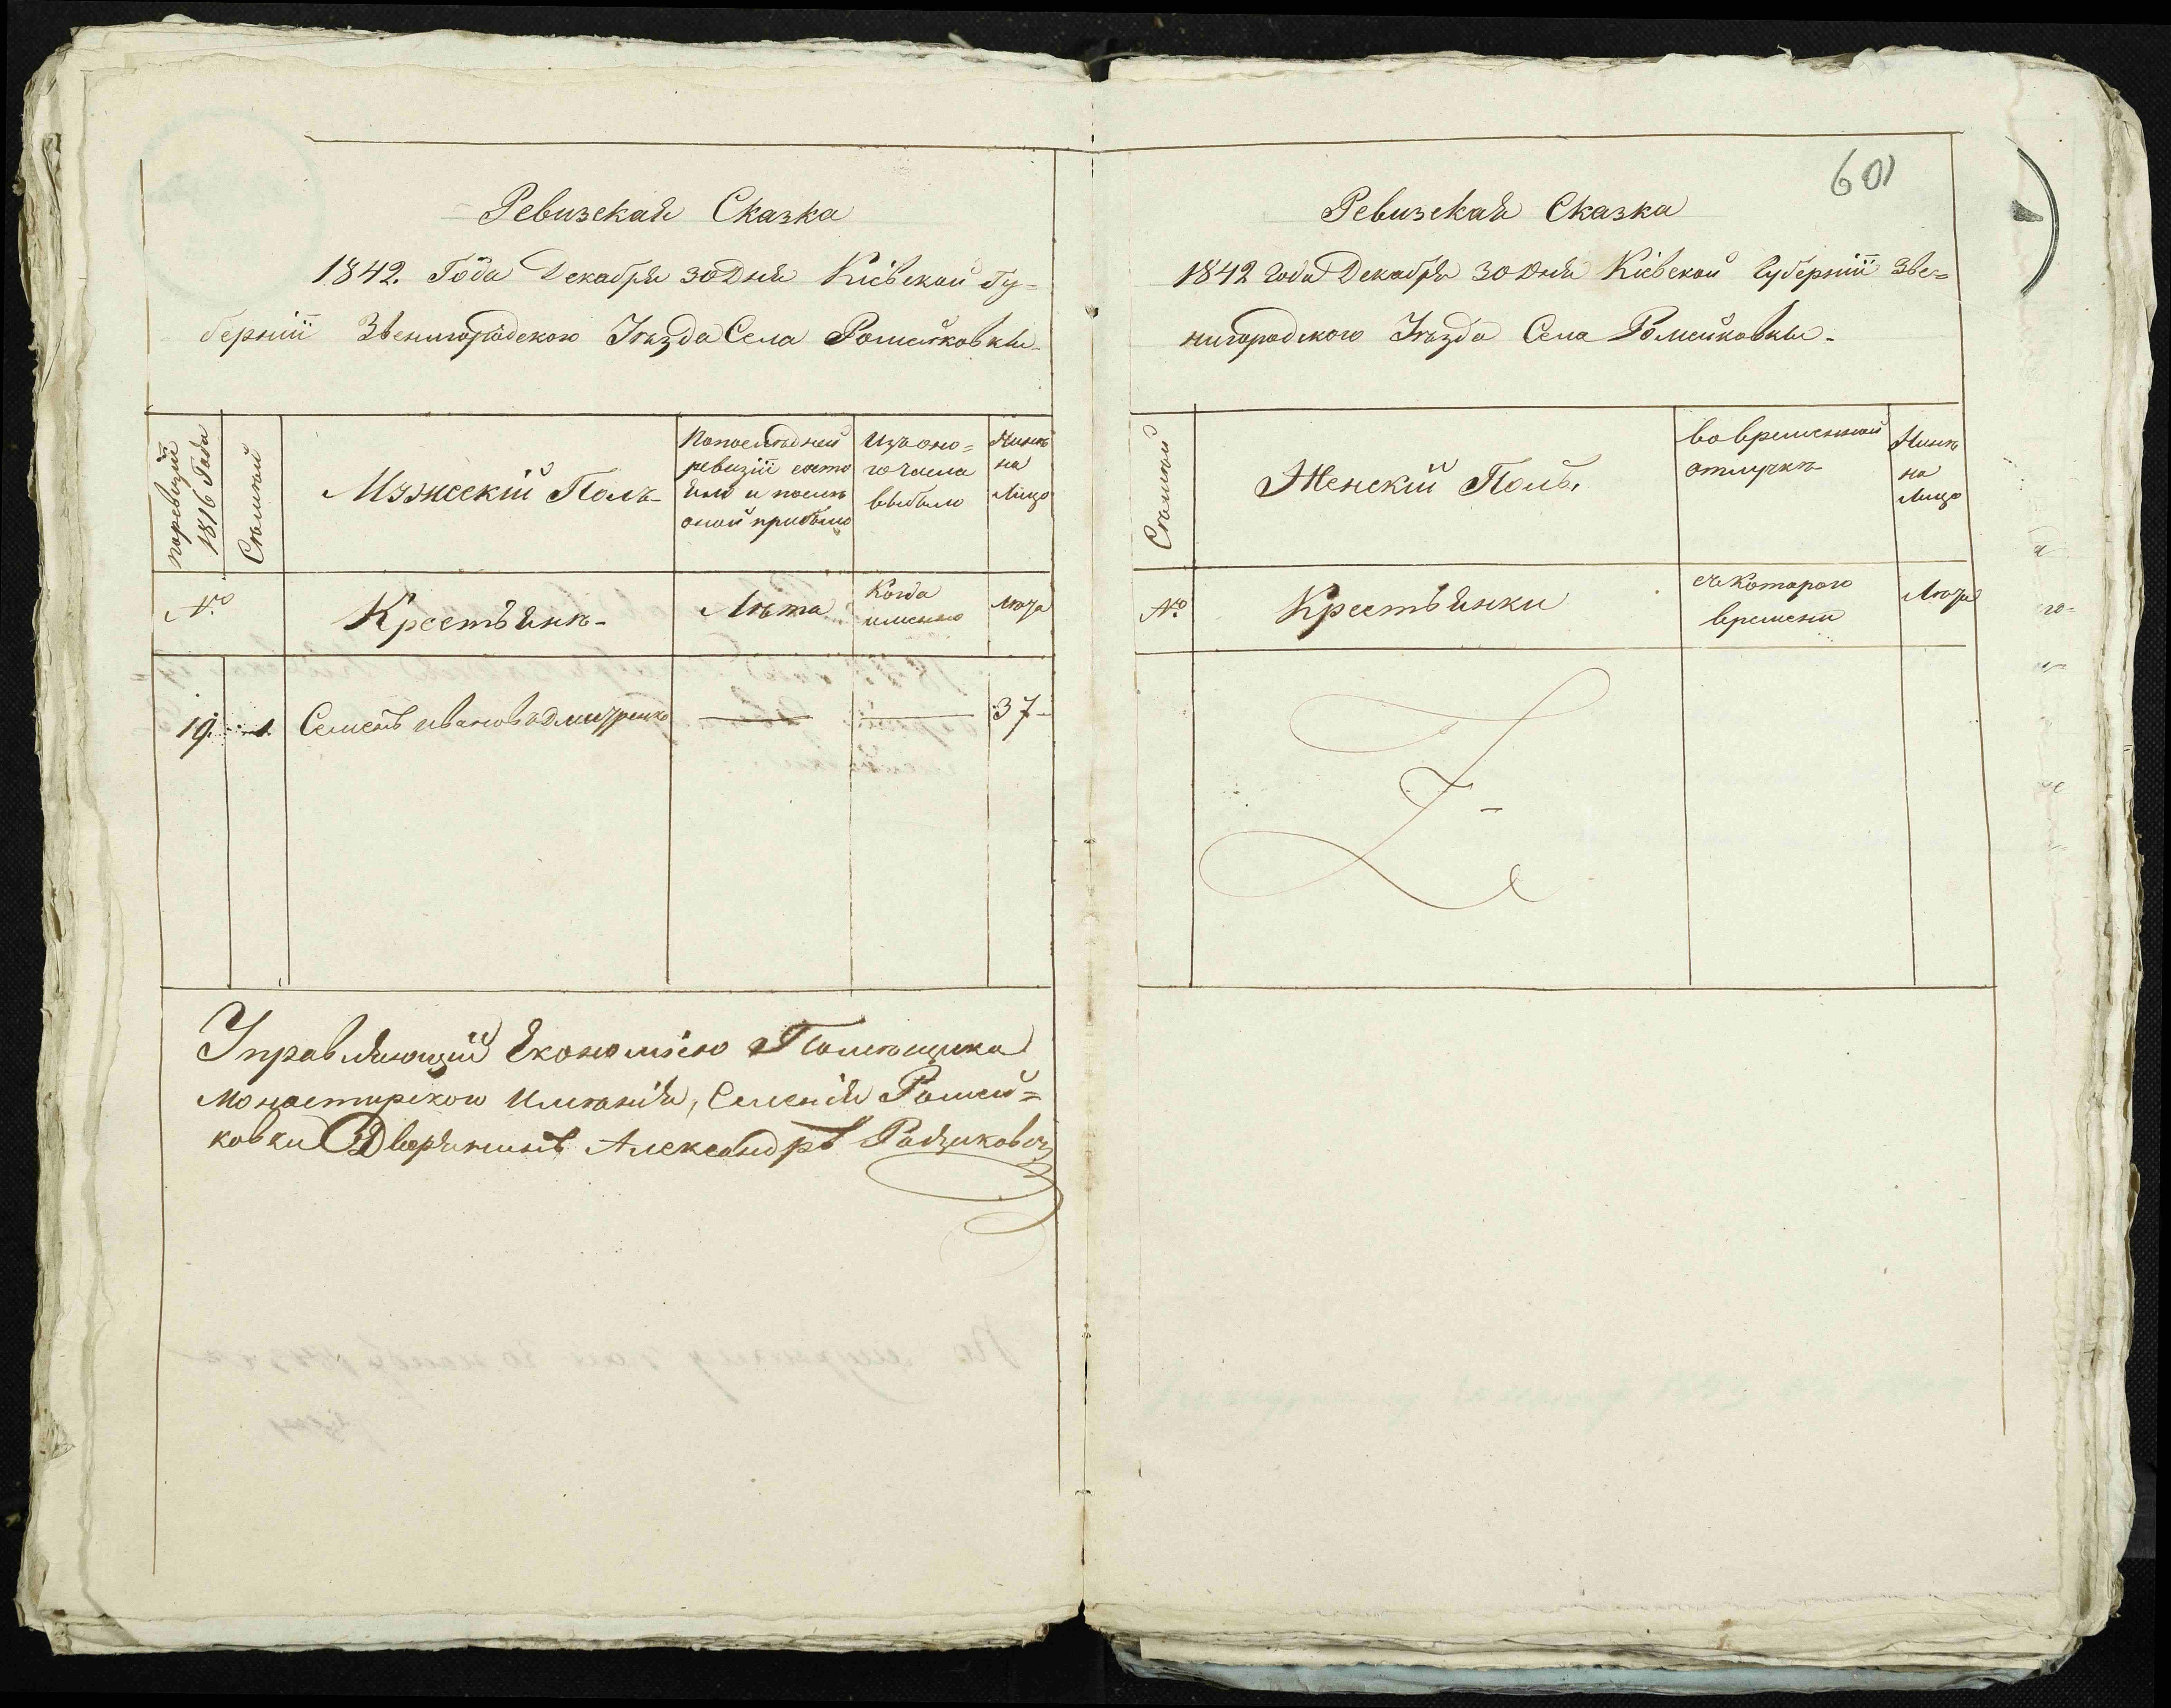 Ревизская Сказка
1842. Года Декабря 30 Дня Кіевской Гу=
берніи Звенигородского Уѣзда Села Ромейковки
по ревизіи 1816 Года
Семьи
Мужескій Полъ
По последней
ревизіи состо
яло и послѣ
оной прибыло
Изъ оно=
го числа
выбыло
Нынѣ
на
Лицо
№
Крестьянъ
Лѣта
Когда
именно
Лета
19. 1. Семенъ Ивановъ 37
Управляющій Економіею Помѣщика
Монастирского Имѣнія, Селенія Ромей=
ковки Дворянинъ Александръ
601
Ревизская Сказка
1842 года Декабря 30 Дня Кіевской Губерніи Зве=
нигородского Уѣзда Села Ромейковки
Семьи
Женскій Полъ
во временной
отлучкѣ
Нынѣ
на
Лицо
№
Крестьянки
съ Которого
времени
Лета